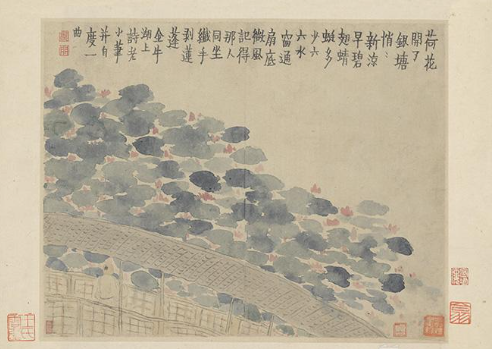 荷花
開了
銀塘
悄〻
新涼
早碧
翅蜻
蜓多
少六
六水
窗通
扇底
微風
記得
那人
同坐
纖手
剝蓮
蓬
金牛
湖上
詩老
小筆
并自
度一
曲